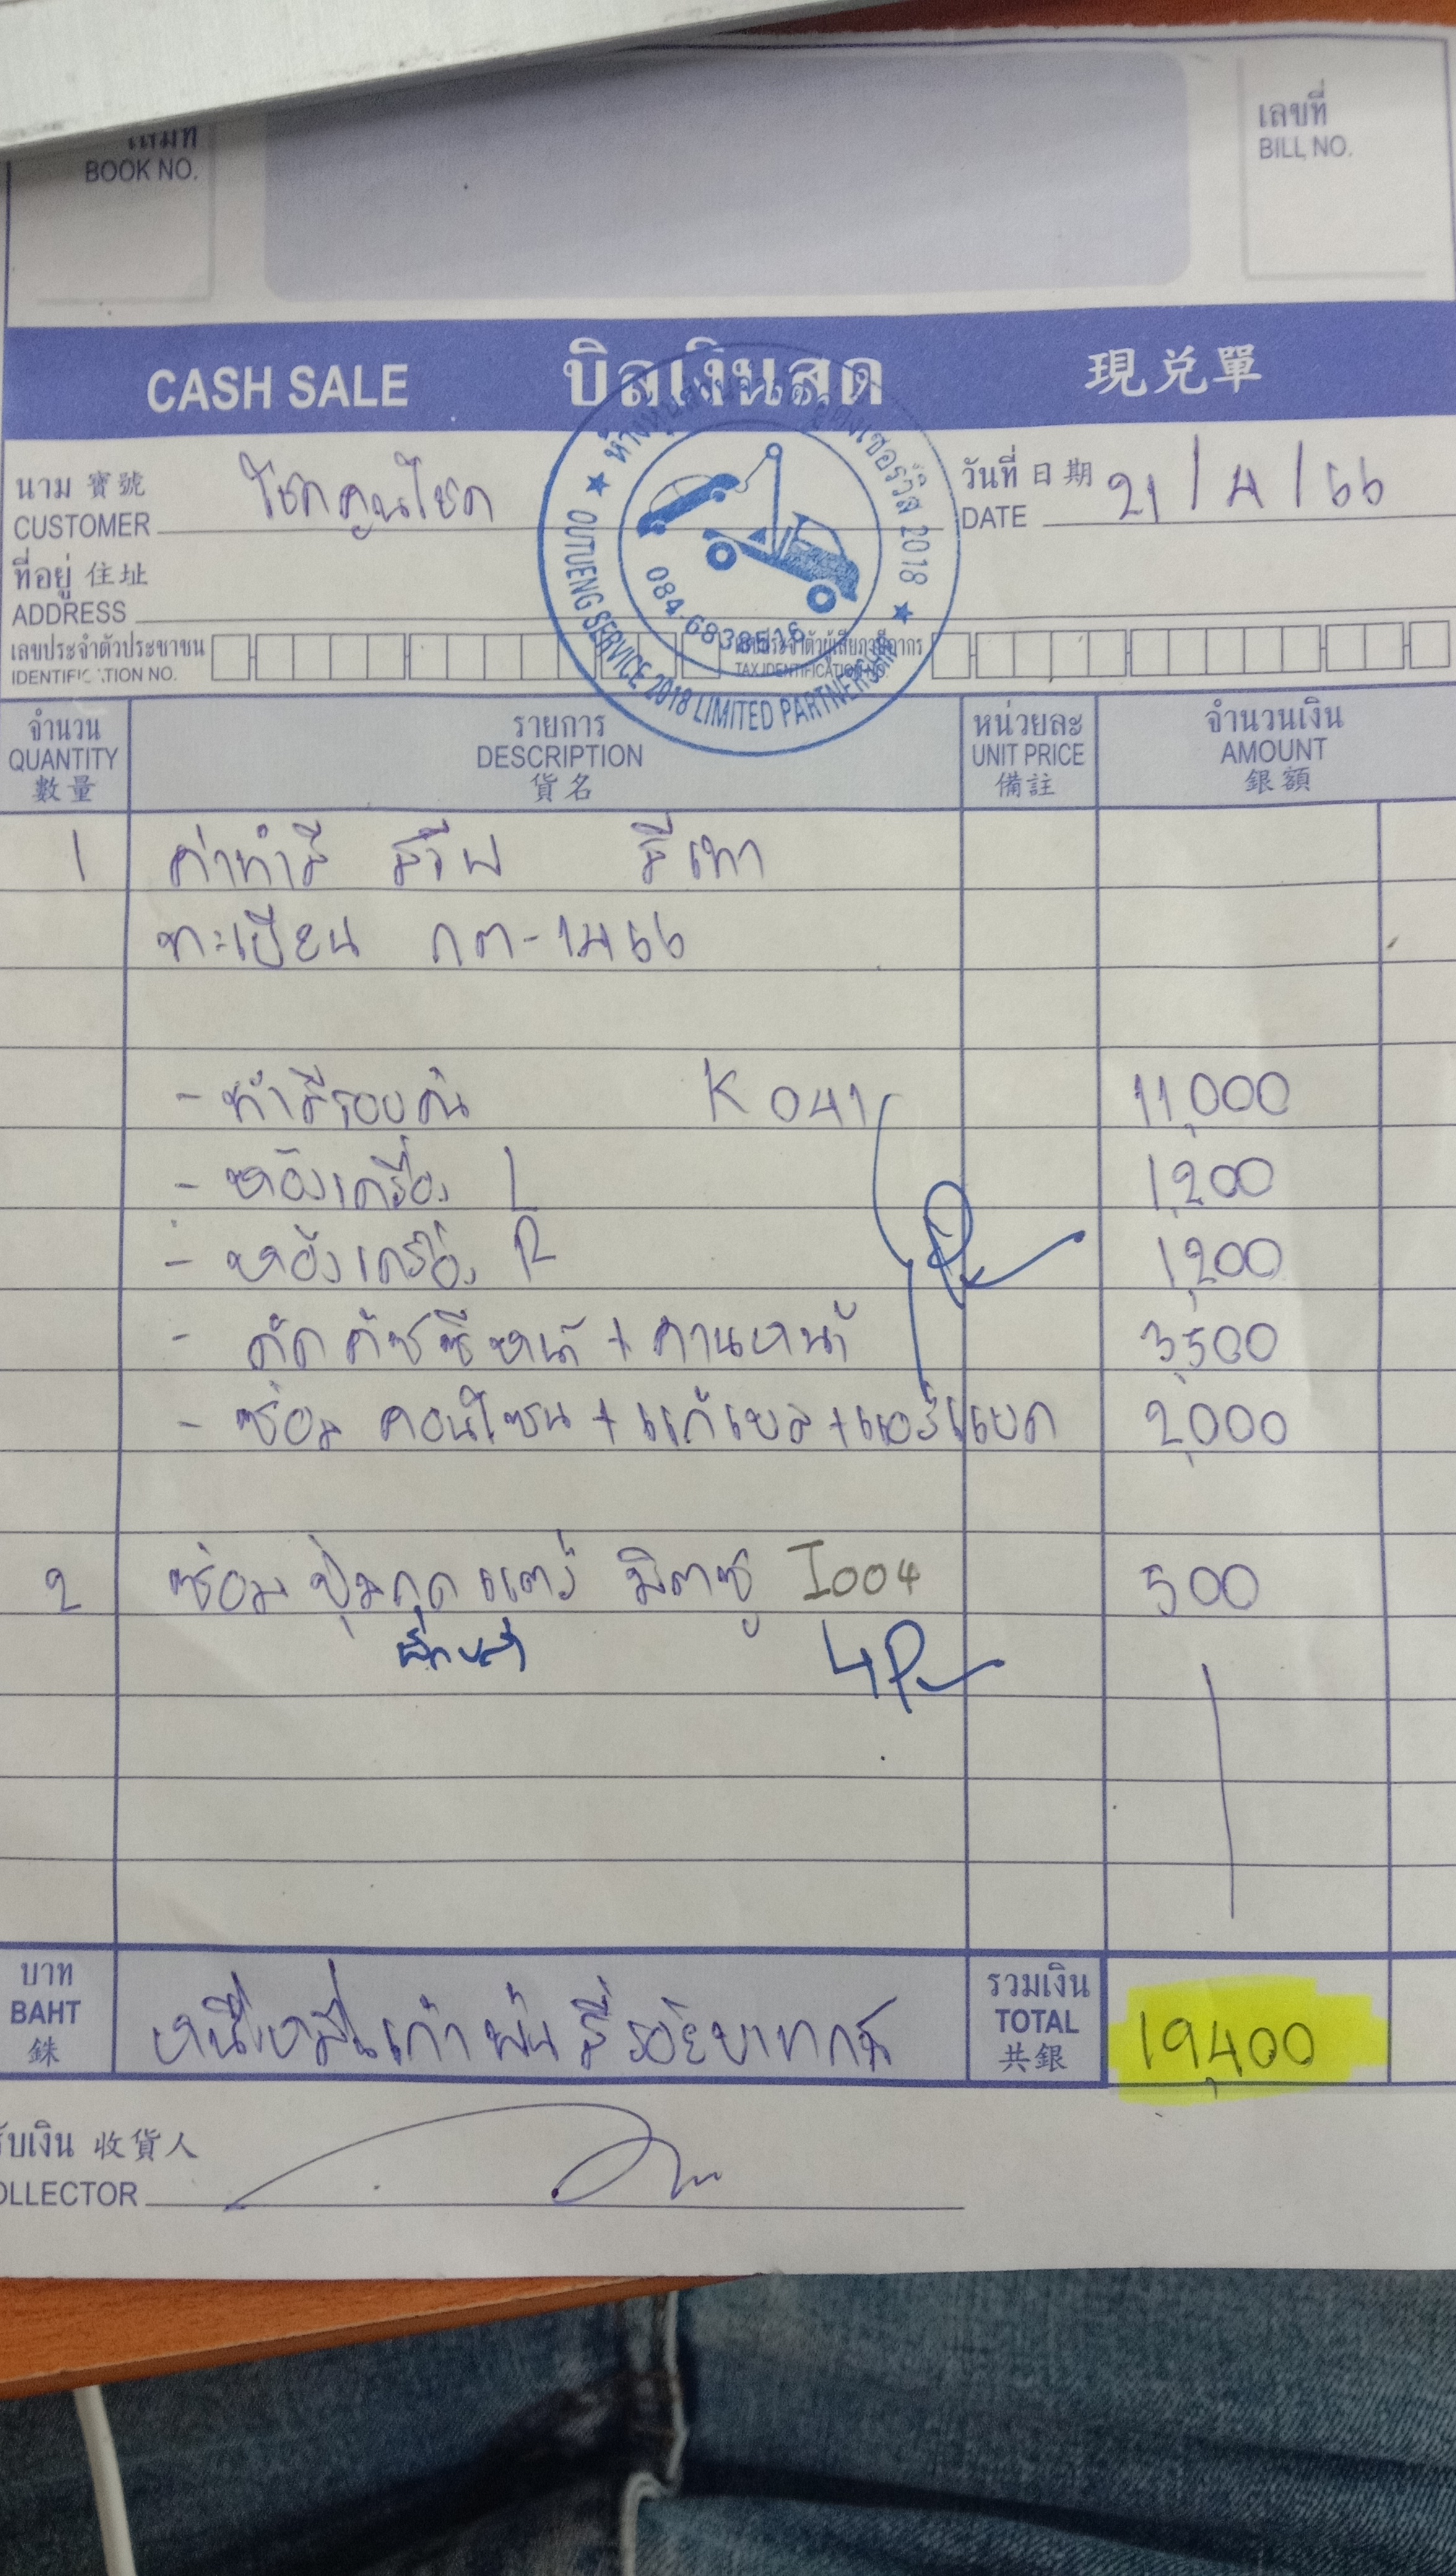 เล่มที่
BOOK NO.
เลขที่
BILL NO.
CASH SALE บิลเงินสด 現兑單
นาม 寶號
CUSTOMER โชคคูนโชค
วันที่ 日期
DATE 21/4/66
ที่อยู่ 住址
ADDRESS
เลขประจำตัวประชาชน
IDENTIFICATION NO.
เลขประจำตัวผู้เสียภาษีอากร
TAX IDENTIFICATION NO.
เซอร์วิส 2018
084-6838516
OUTUENG SERVICE 2018 LIMITED PARTNERSHIP
จำนวน รายการ หน่วยละ จำนวนเงิน
QUANTITY DESCRIPTION UNIT PRICE AMOUNT
數量 貨名 備註 銀額
1 ค่าทำสี สวีฟ สีเทา
ทะเบียน กต-1466
- ทำสีรอบคัน K041 11,000
- หลังเครื่อง L 1,200
- หลังเครื่อง R 1,200
- ดัดคัชซีหน้า + คานหน้า 3,500
- ซ่อม คอนโซน + แก้เบล + แอร์แบค 2,000
2 ซ่อม ปุ่มกดแตร์ มิตซู I004 500
บาท
BAHT
銖
หนึ่งหมื่นเก้าพันสี่ร้อยบาทถ้วน
รวมเงิน
TOTAL
共銀
19,400
รับเงิน 收貨人
COLLECTOR